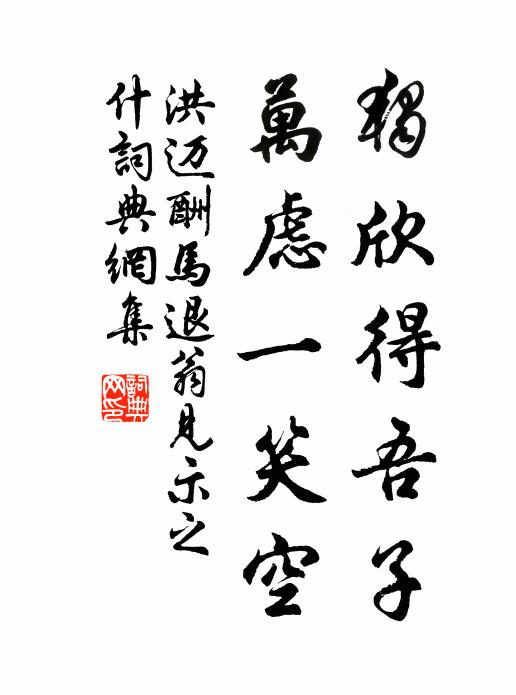 獨欣得吾子
萬慮一笑空
洪迈酬馬退翁見示之
什詞典網集
詞典网印